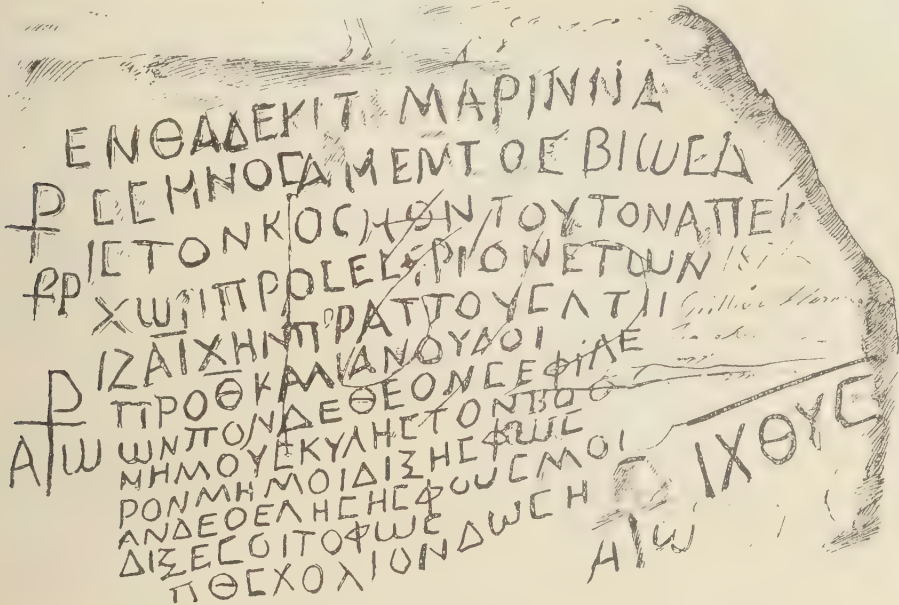 ΕΝΘΑΔΕΚΙΤ ΜΑΡΙΝΝΑ
CΕΗΜΝΟCΑΜΕΜΤΟCΒΙΩCΑ
ΙCΤΟΝΚΟC ΟΝΤΟΥΤΟΝΑΠΕΙ
⳨
ΧΩΙΙΠΡΟCΕ ΡΙΟΝΕΤΩΝ
ΙΖΑΙΧΗΝΠΡΑΤΤΟΥCΛΤΙΙ
ΠΡΟΘΚΑΛΙΑΝΟΥΔΟΙ
ΩΝΠΟΝΔΕΘΕΟΝCΕΦΙΛΕ
Α⳨Ω
ΜΗΜΟΥCΚΥΛΗCΤΟΝΒΟΘ
ΡΟΝΜΗΜΟΙΔΙΞΗCΦΩC
ΑΝΔΕΘΕΛΗCΗCΦΩΥCΜΟΙ
ΔΙΞΕCCΟΙΤΟΦΩC
ΠΘΕΧΟΛΙΟΝΔΩCΗ
ΙΧΘΥC
Α Ω